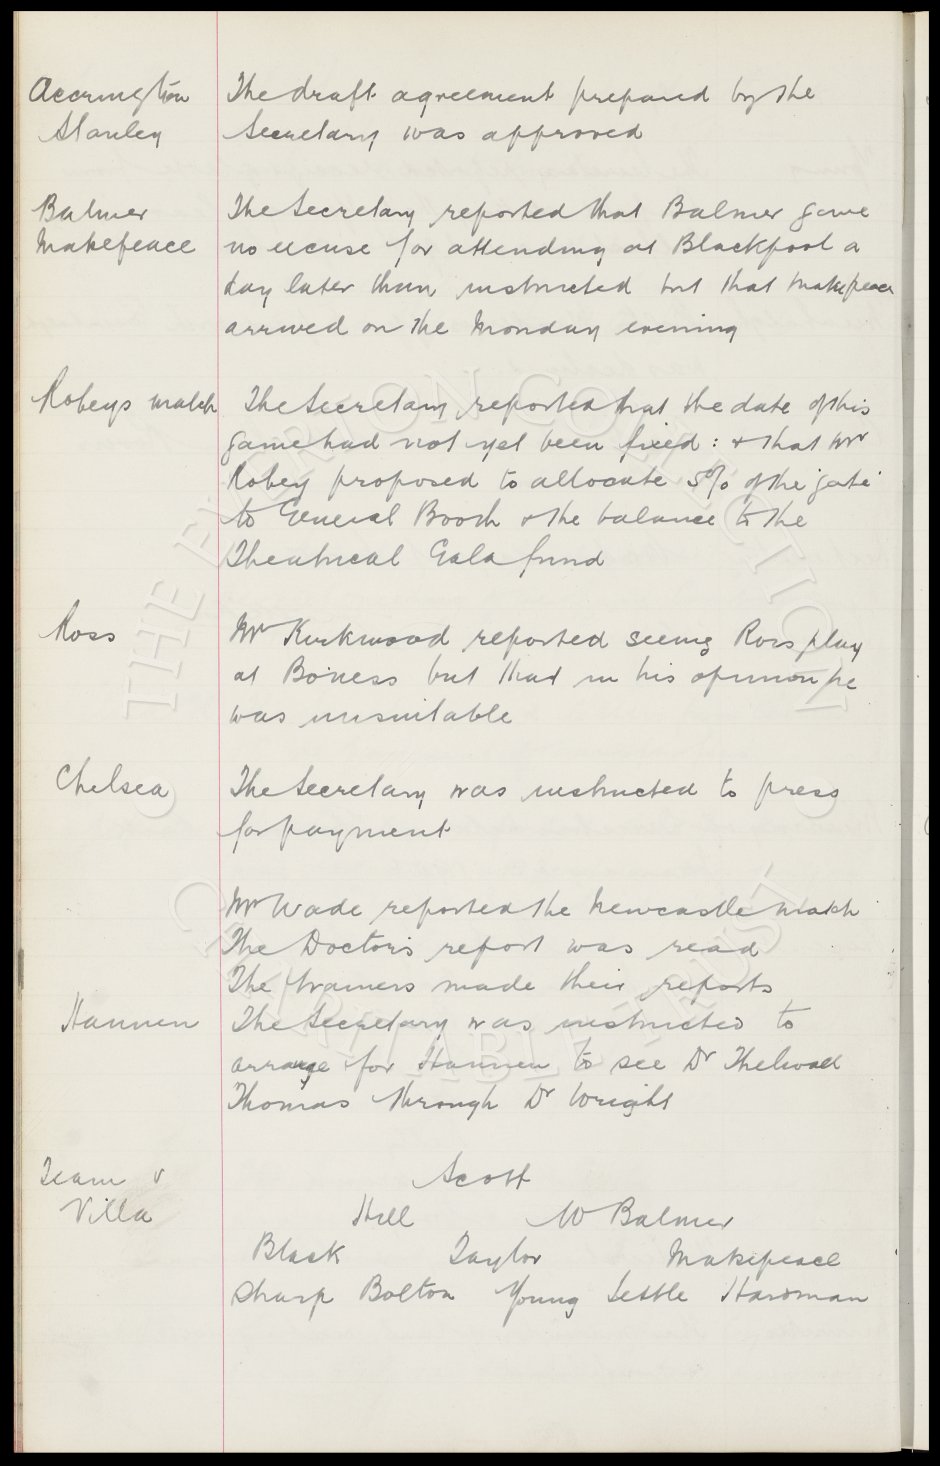 Accrington The draft agreement prepared by the
Stanley Secretary was approved
Balmer The Secretary reported that Balmer gave
Makepeace no excuse for attending at Blackpool a
day later than instructed but that Makepeace
arrived on the Monday evening
Robeys match The Secretary reported that the date of this
game had not yet been fixed: & that Mr
Robey proposed to allocate 5% of the 'gate'
to General Booth & the balance to the
Theatrical Gala fund
Ross Mr Kirkwood reported seeing Ross play
at Bo'ness but that in his opinion he
was unsuitable
Chelsea The Secretary was instructed to press
for payment
Mr Wade reported the Newcastle match
The Doctor's report was read
The trainers made their reports
Hannen The Secretary was instructed to
arrange for Hannen to see Dr Thelwall
Thomas through Dr Wright
Team v Scott
Villa Hill W Balmer
Black Taylor Makepeace
Sharp Bolton Young Settle Hardman
THE EVERTON COLLECTION
CHARITABLE TRUST